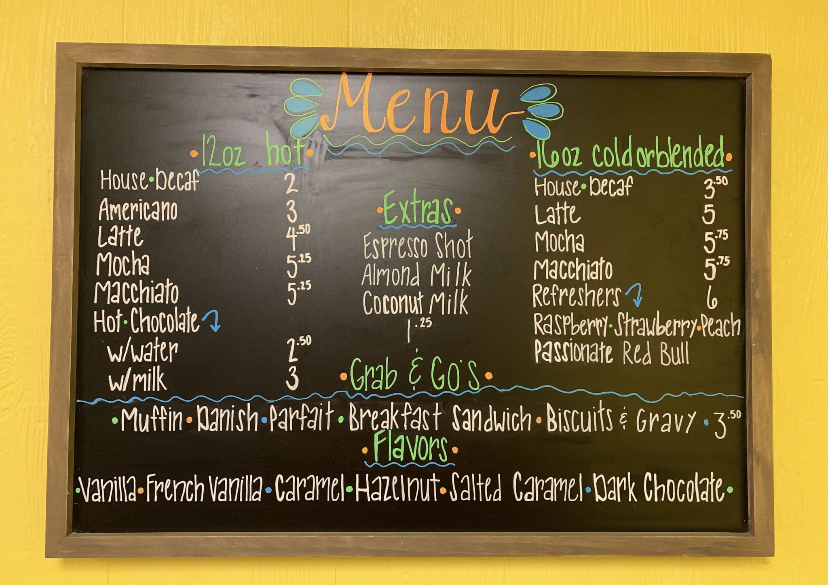 Menu
12oz hot
House • Decaf 2
Americano 3
Latte 4.50
Mocha 5.25
Macchiato 5.25
Hot • Chocolate
w/water 2.50
w/milk 3
Extras
Espresso Shot
Almond Milk
Coconut Milk
1.25
16oz cold or blended
House • Decaf 3.50
Latte 5
Mocha 5.75
Macchiato 5.75
Refreshers 6
Raspberry • Strawberry • Peach
Passionate Red Bull
Grab & Go's
• Muffin • Danish • Parfait • Breakfast Sandwich • Biscuits & Gravy • 3.50
Flavors
• Vanilla • French Vanilla • Caramel • Hazelnut • Salted Caramel • Dark Chocolate •